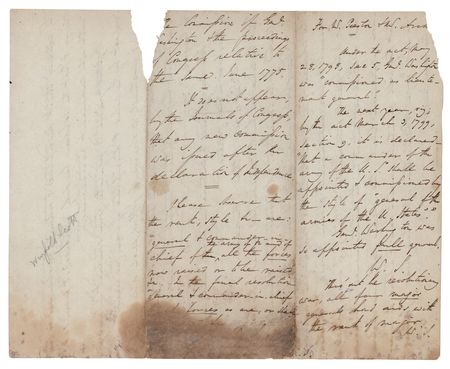 Winfield Scott
The Commission of Genl.
Washington & the proceedings
of Congress relative to
the same June 1775.
It does not appear,
by the Journals of Congress,
that any new Commission
was issued after the
declaration of Independence
Please observe that
the rank, style &c. are:
general & commander in
chief of the, all the forces
now raised or to be raised
In the final resolution
general & commander in chief
forces as are, or shall
For W. Preston & W.
Under the act, May
28, 1798, Sec. 5, Genl. Washington
was commissioned as lieute-
nant general.
The next year, viz:
by the act March 3, 1799,
Section 9, it is declared
"that a commander of the
army of the U. S. shall be
appointed & commissioned by
the style of "general of the
armies of the U. States."
Genl. Washington was
so appointed full general,
W. S.
Thro' out the revolutionary
war, all our major
generals had aids, with
the rank of major.
W. S.